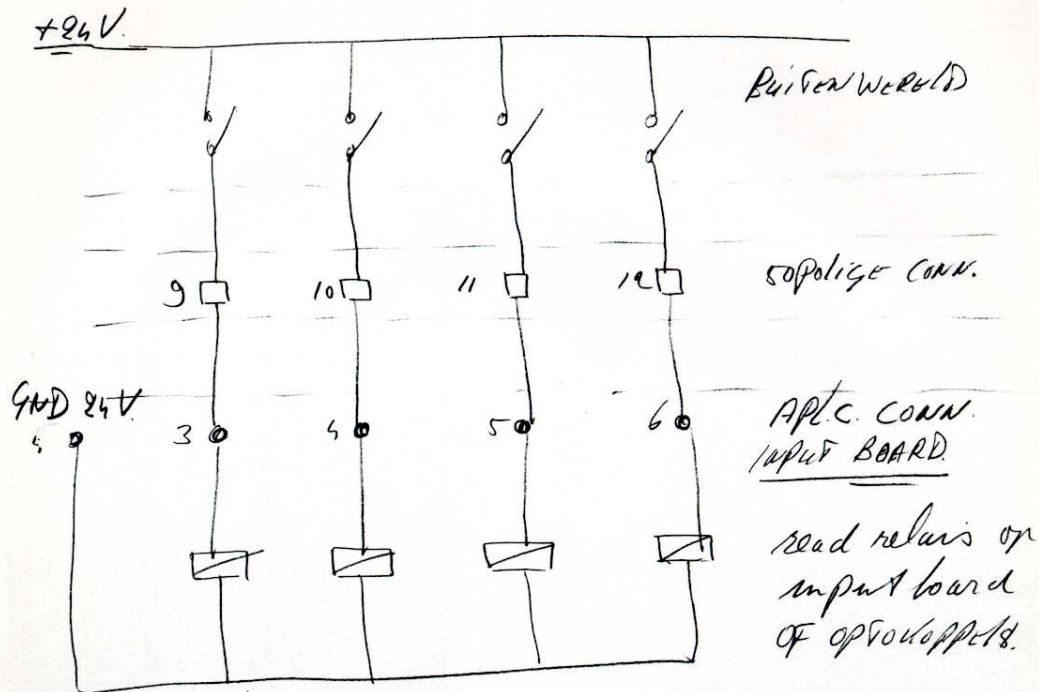 +24V.
BUITENWERELD
9 10 11 12 50polige CONN.
GND 24V.
3 4 5 6 APL.C. CONN.
INPUT BOARD
read relais op
input board
OF OPTOKOPPELS.